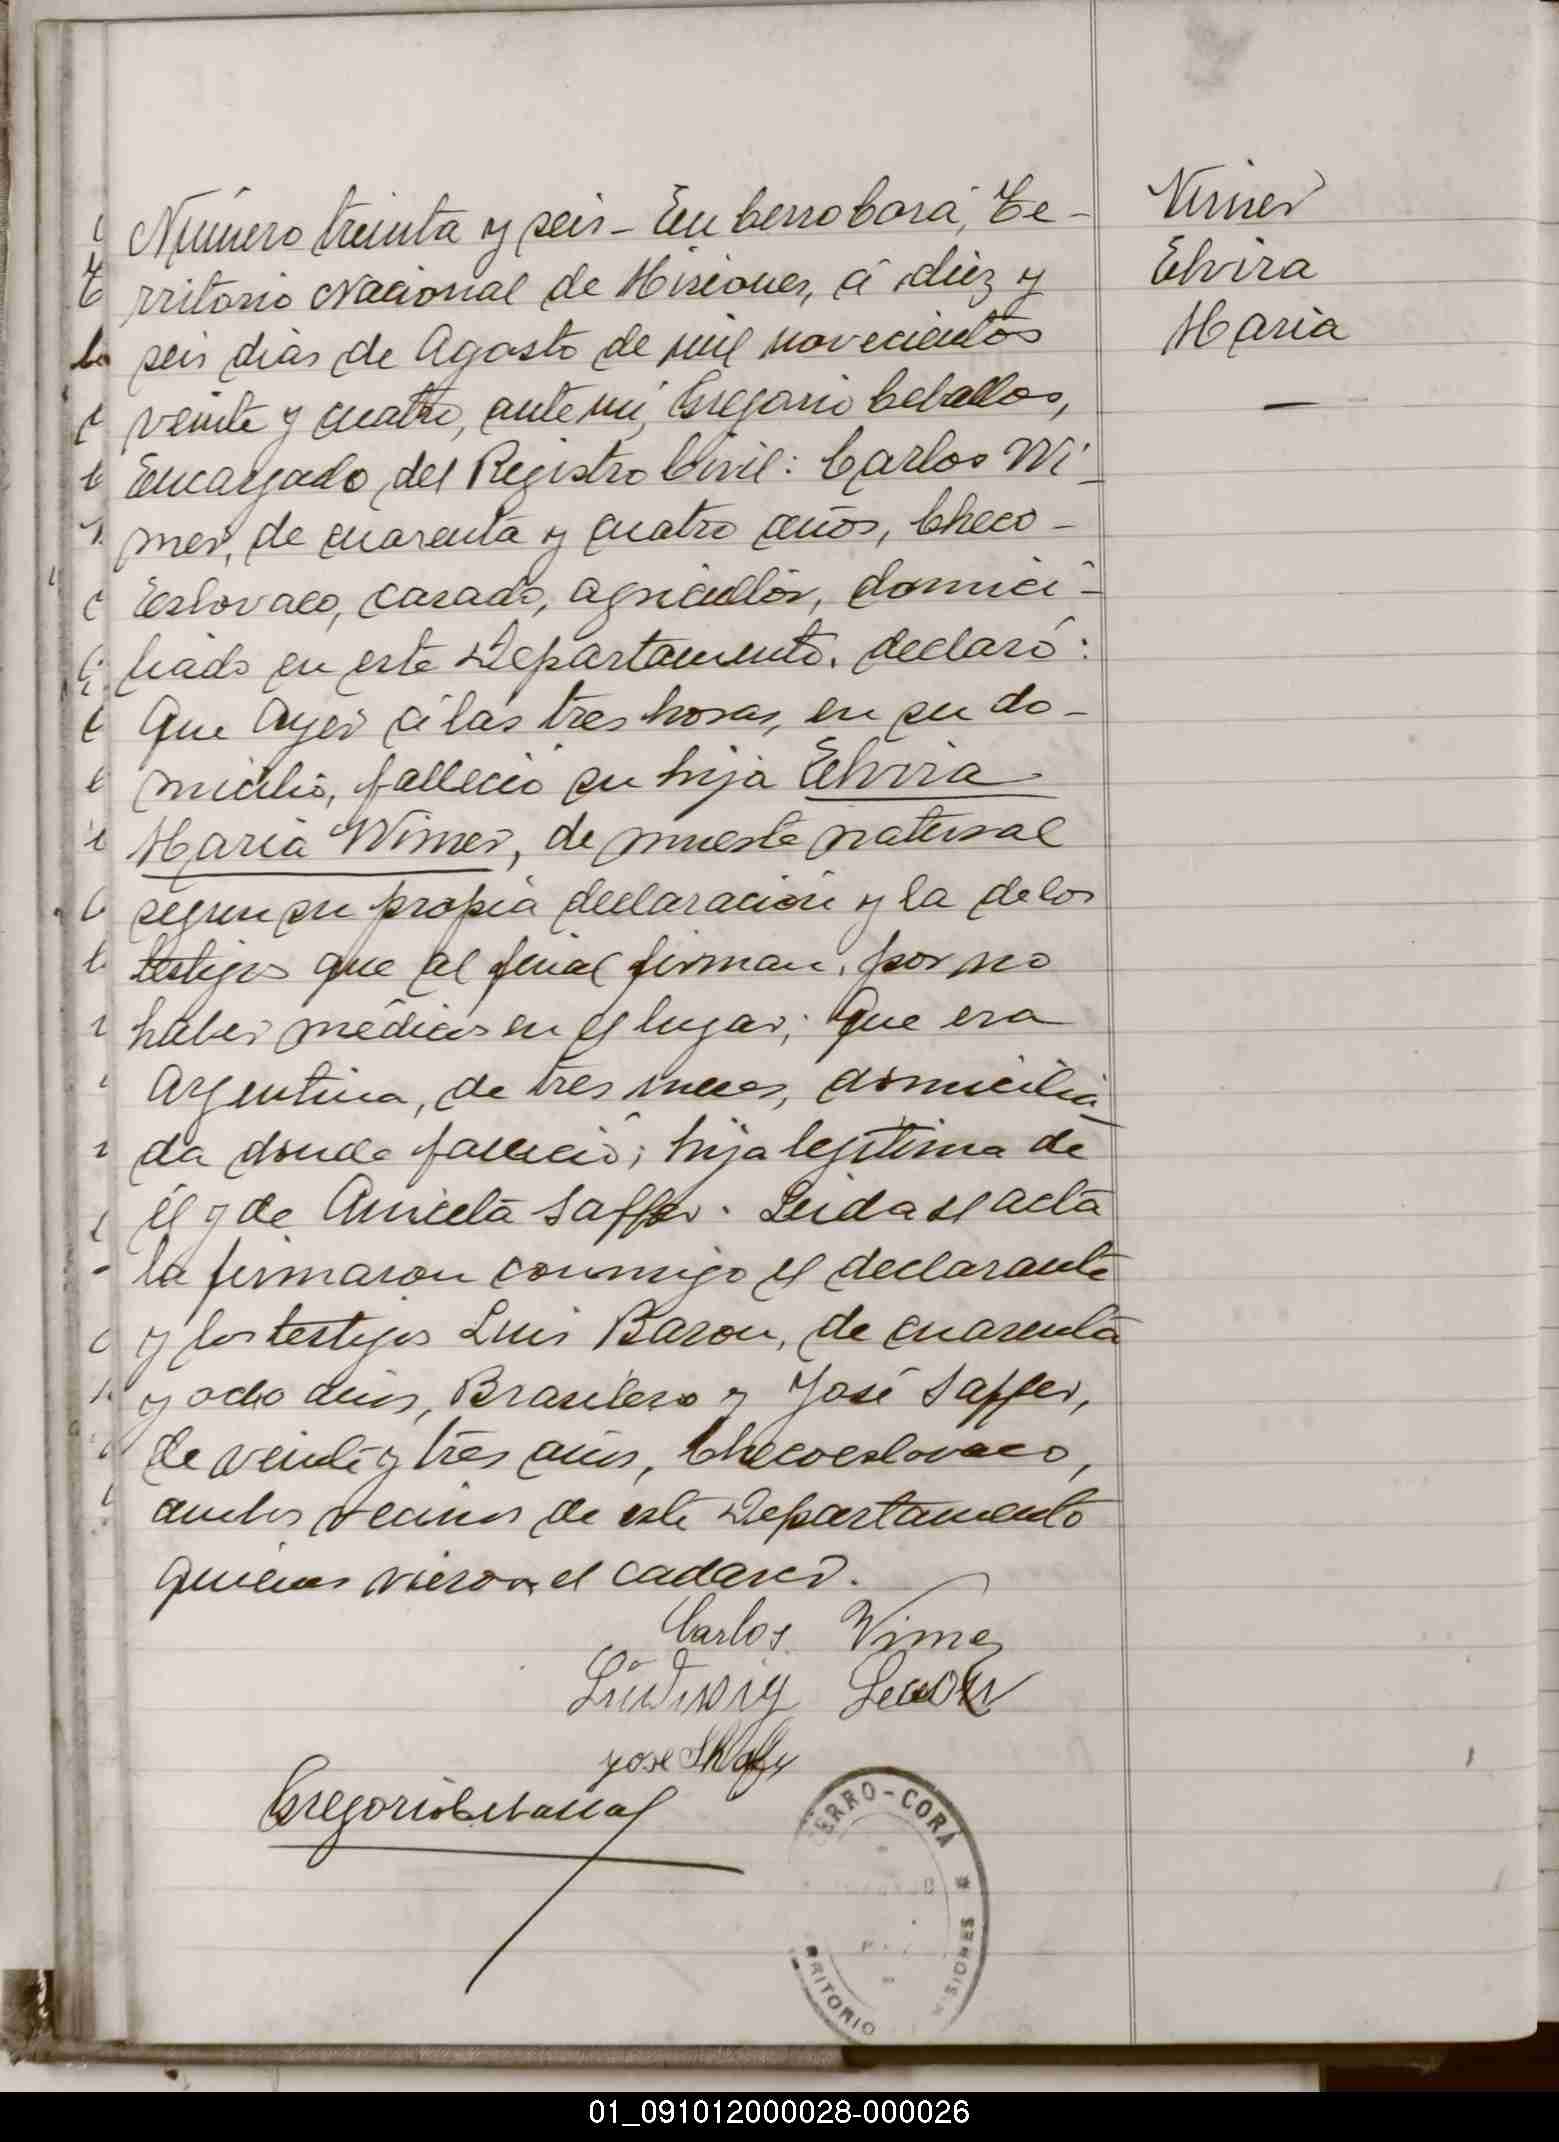 Número treinta y seis - En Cerro Corá, Te-
rritorio Nacional de Misiones, á diez y
seis dias de Agosto de mil novecientos
veinte y cuatro, ante mi, Gregorio Ceballos,
Encargado del Registro Civil: Carlos Wi-
mer, de cuarenta y cuatro años, Checo-
Eslovaco, casado, agricultor, domici-
liado en este Departamento. declaró:
Que Ayer á las tres horas, en su do-
micilio, falleció su hija Elvira
Maria Wimer, de muerte natural
segun su propia declaración y la de los
testigos que al final firman, por no
haber médicos en el lugar; Que era
Argentina, de tres meses, domicilia-
da donde falleció; hija legítima de
él y de Aniceta Saffer. Leida el acta
la firmaron conmigo el declarante
y los testigos Luis Baron, de cuarenta
y ocho años, Brasilero y José Saffer,
de veinte y tres años, Checoeslovaco,
ambos vecinos de este Departamento
quienes vieron el cadaver.
Carlos Wimer
Ludwig
Jose
Gregorio Ceballos
Wimer
Elvira
Maria
CERRO-CORÁ
RRITORIO
MISIONES
01_091012000028-000026